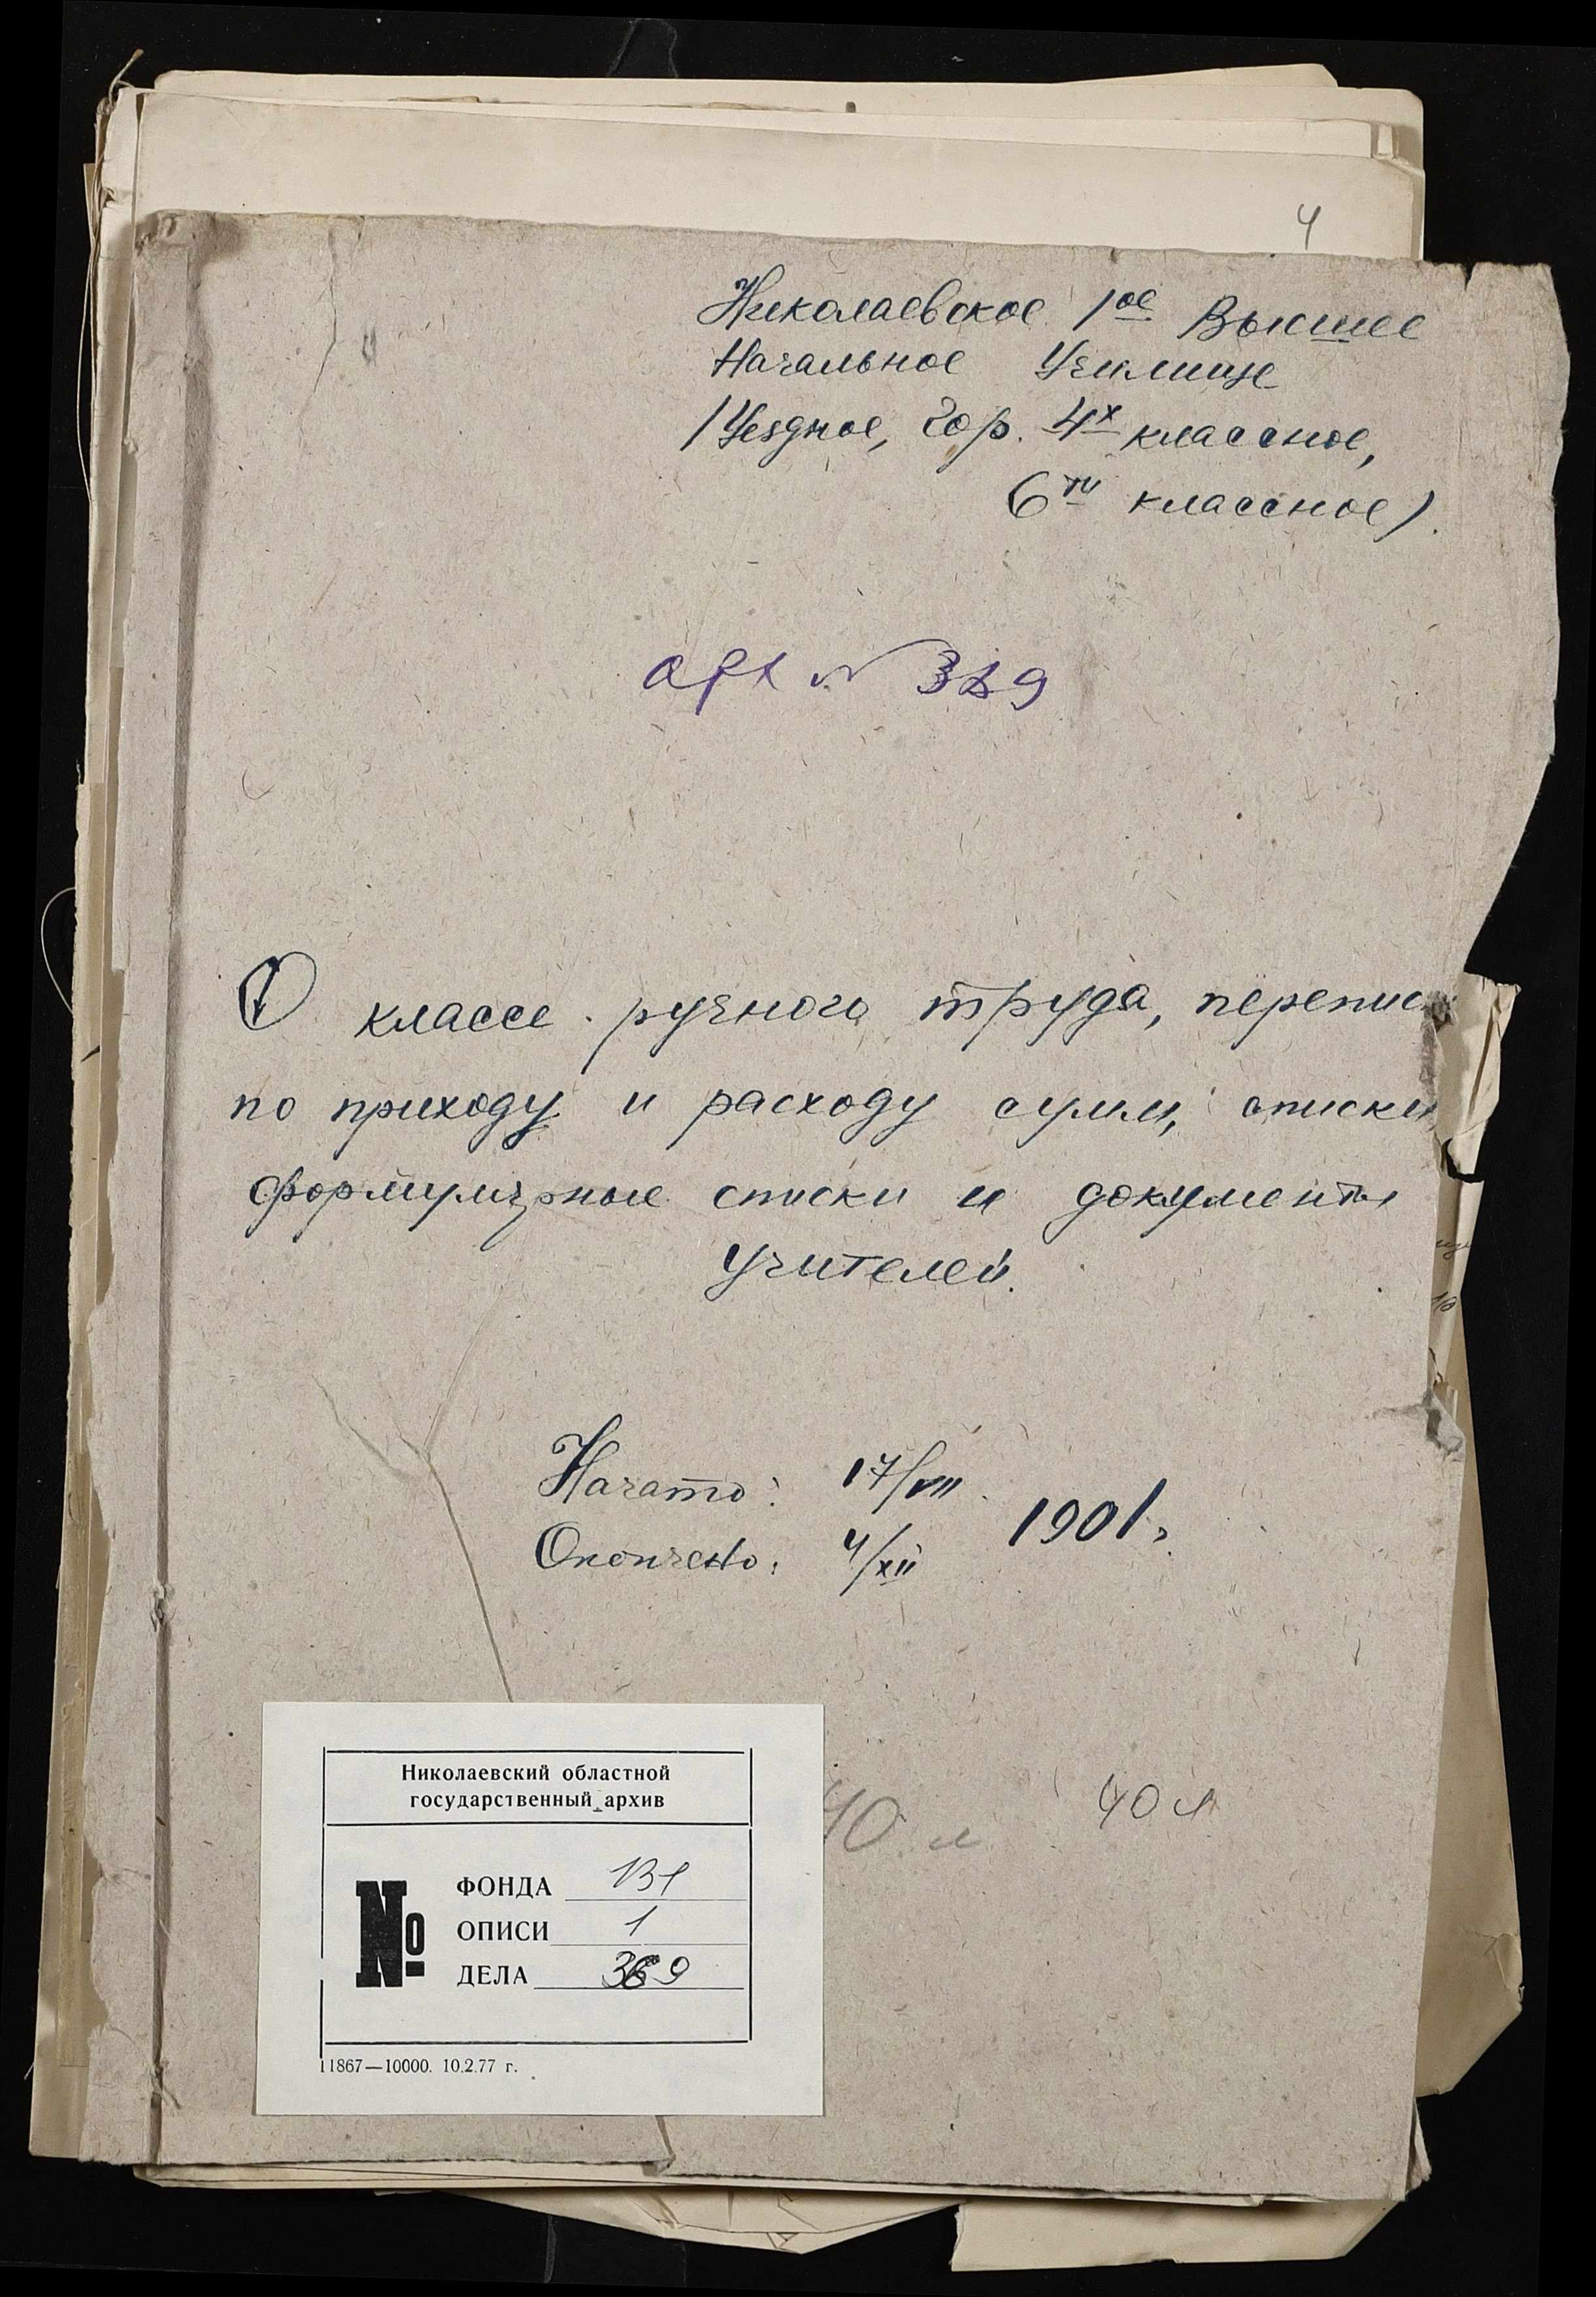 4
Николаевское 1ое Высшее
Начальное Училище
/Уездное, Гор. 4х классное,
6ти классное)
арх №
О классе ручного труда, перепис
по приходу и расходу сумм, списки
формулярные списки и документы
учителей.
Начато: 17/VII 1901г.
Окончено: 4/XII
40 л 40 л
Николаевский областной
государственный архив
№
ФОНДА 131
ОПИСИ 1
ДЕЛА 369
11867—10000. 10.2.77 г.